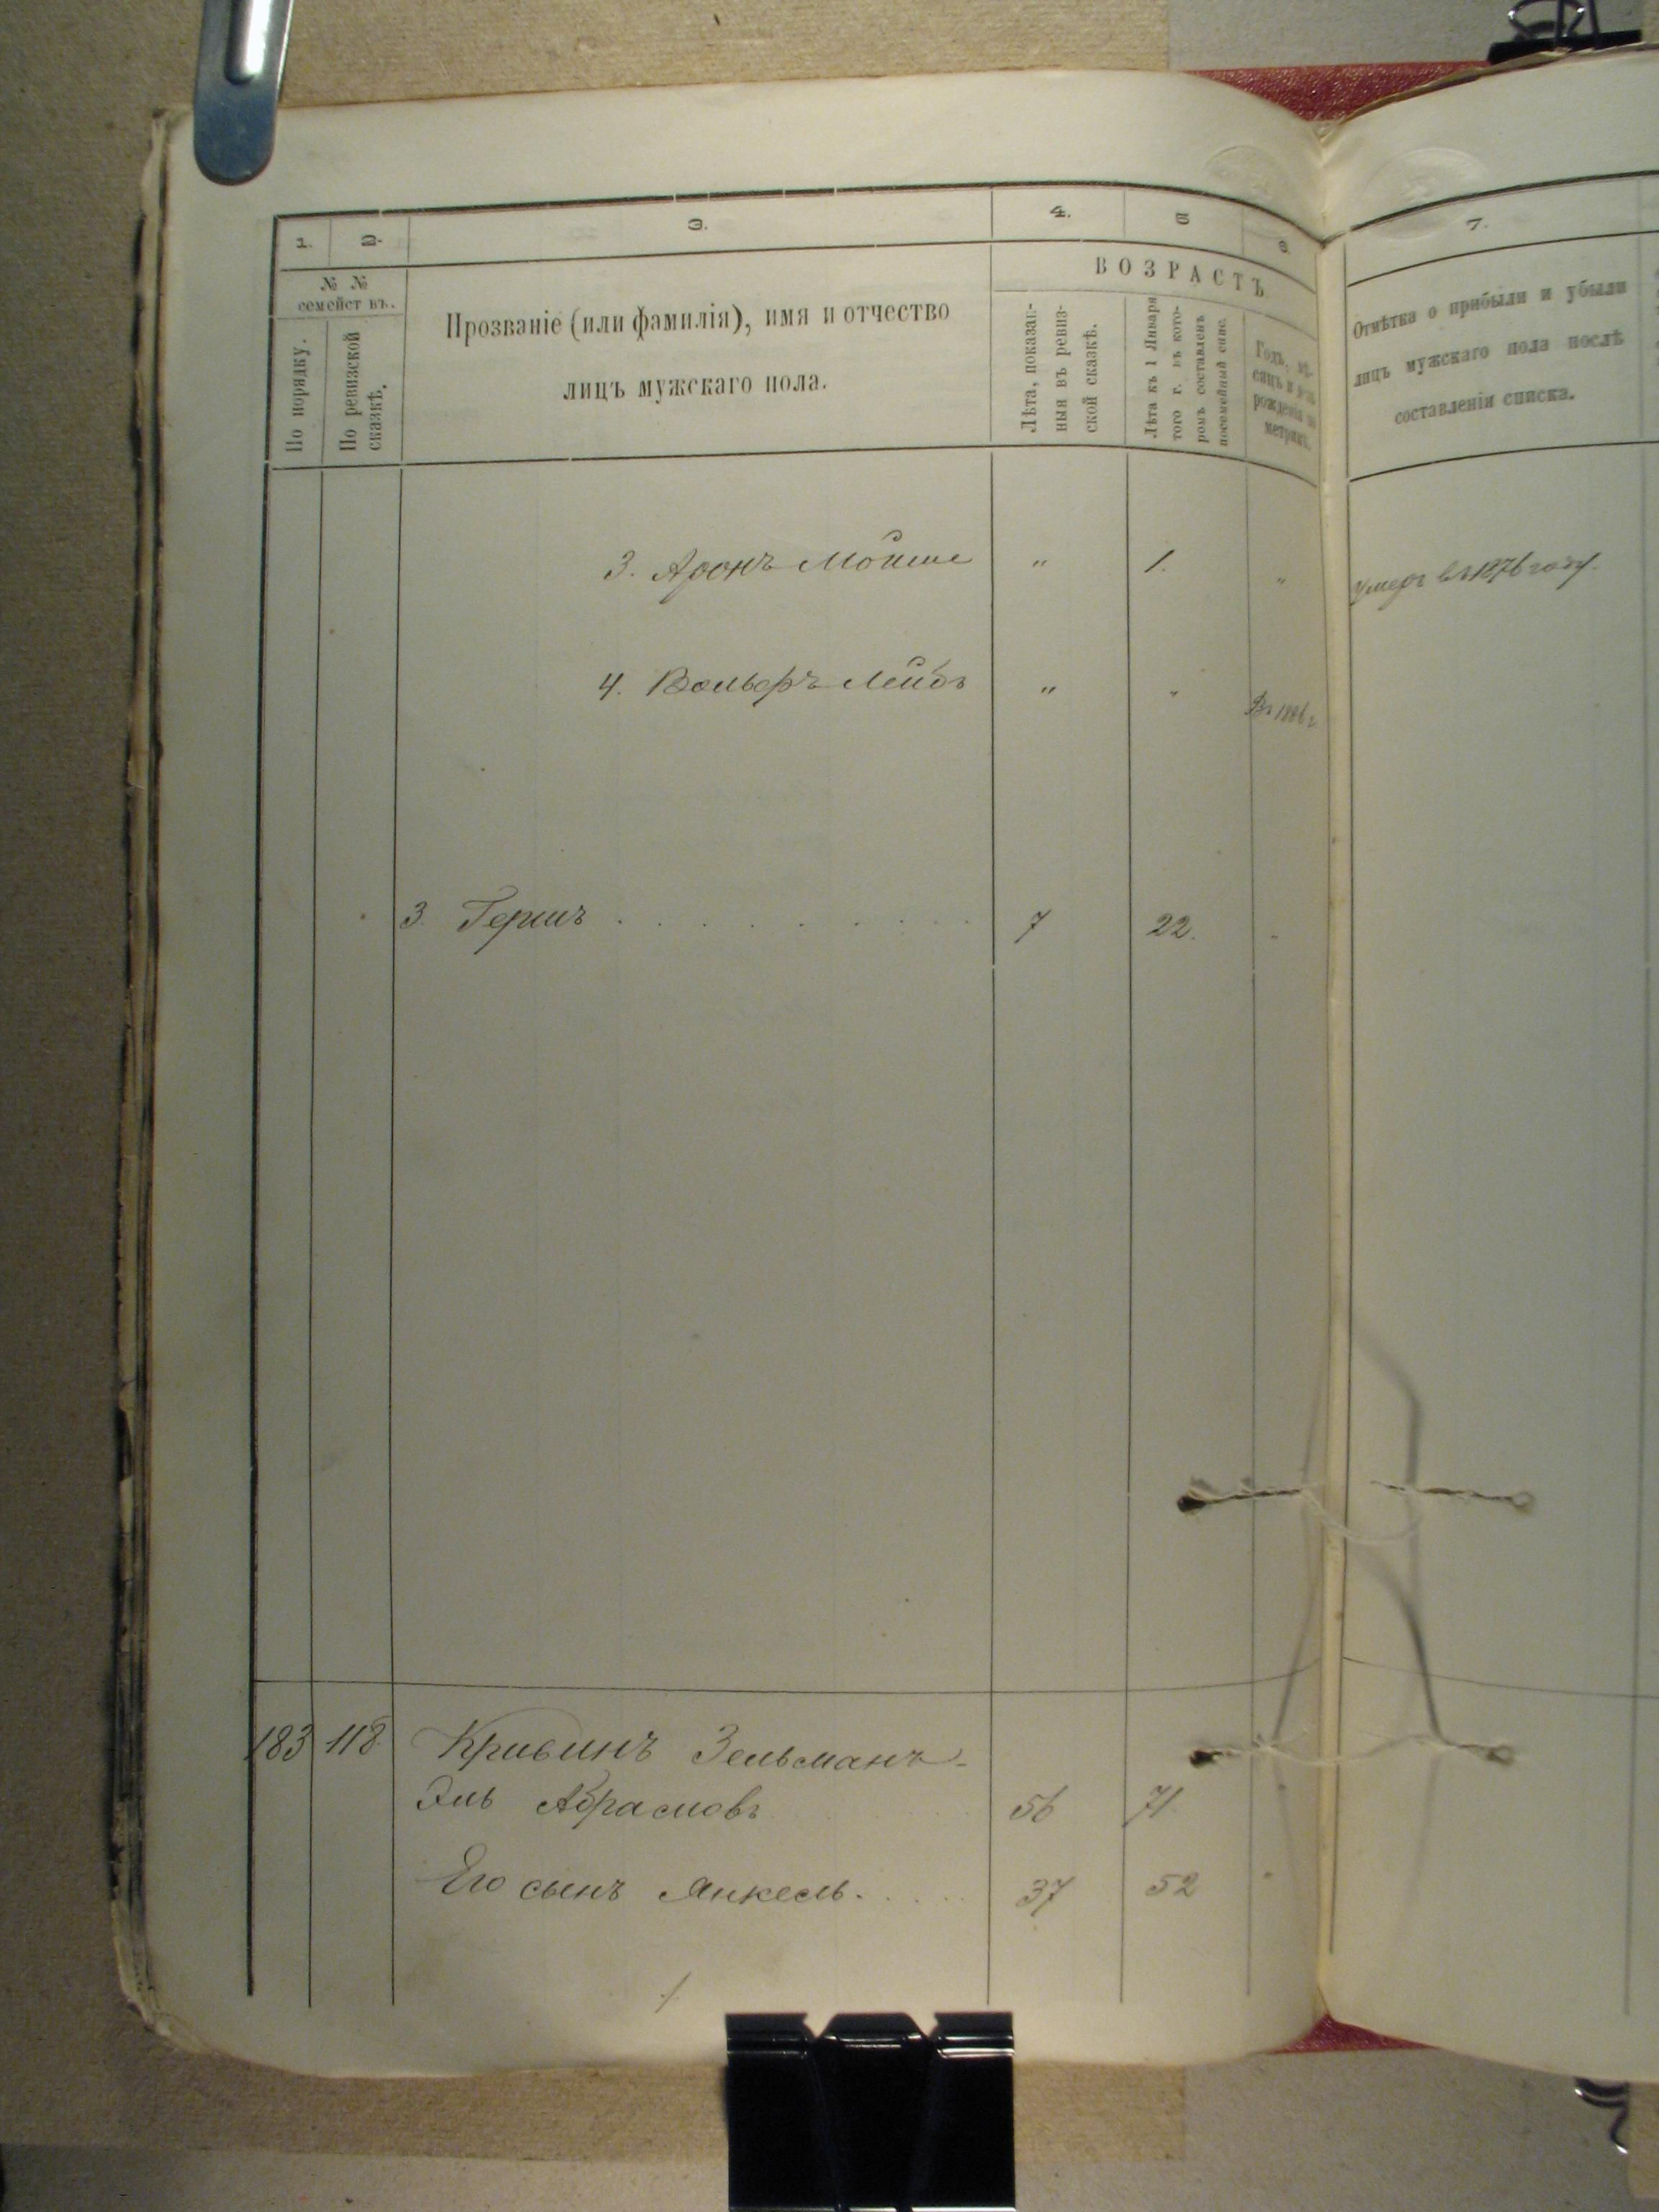 1. 2. 3. 4. 5 6. 7.
№ № семейст въ.
По порядку.
По ревизской сказкѣ.
Прозваніе (или фамилія), имя и отчество
лицъ мужскаго пола.
ВОЗРАСТЪ
Лѣта, показан-
ныя въ ревиз-
ской сказкѣ.
Лѣта къ 1 Января
того г. въ кото-
ромъ составленъ
посемейный спис.
Годъ, мѣ-
сяцъ и день
рожденія по
метрик.
Отмѣтка о прибыли и убыли
лицъ мужскаго пола послѣ
составленія списка.
3. Аронъ Мойше " 1. " Умеръ въ 1876 году.
4. Вольфъ Лейбъ " " Въ г
3. Гершъ . . . . . . . . . 7 22. "
183 118 Кривинъ Зельманъ-
Эль Абрамовъ 56 71
Его сынъ Янкель . . . . 37 52 "
1.